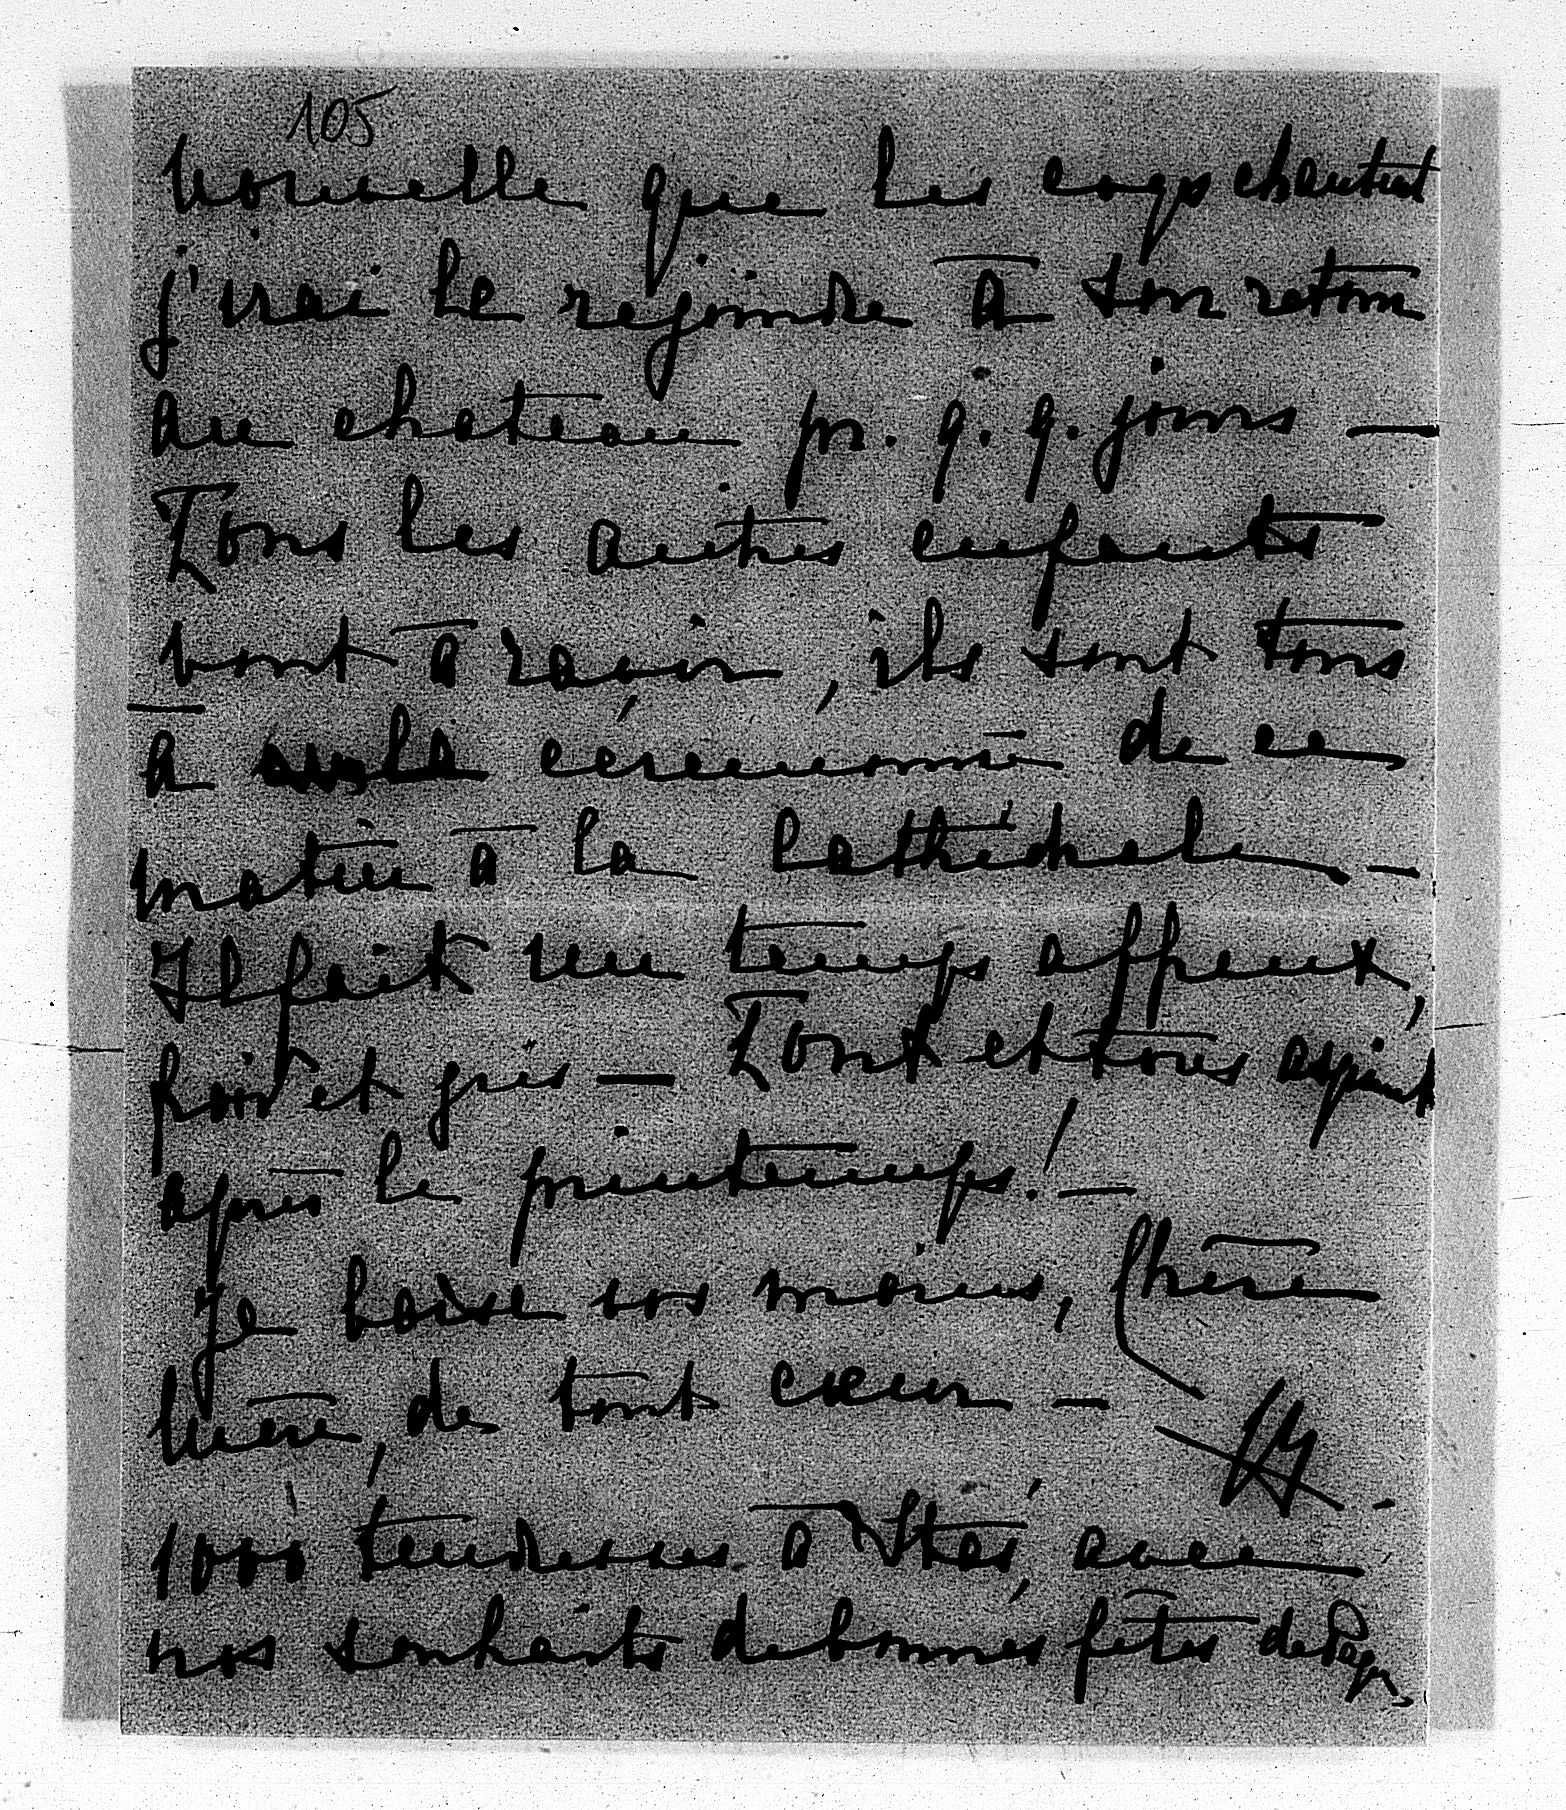 105
nouvelle que les coqs chantent
j'irai le rejoindre à son retour
au chateau pr. q. q. jours —
Tous les autres enfants
vont à ravir, ils sont tous
à la cérémonie de ce
matin à la Cathédrale —
Il fait un temps affreux,
froid et gris — Tout et tous aspirent
après le printemps! —
Je baise vos mains, Chère
Mère, de tout cœur —
1000 tendresses à avec
nos souhaits de bonnes fêtes de Pâques